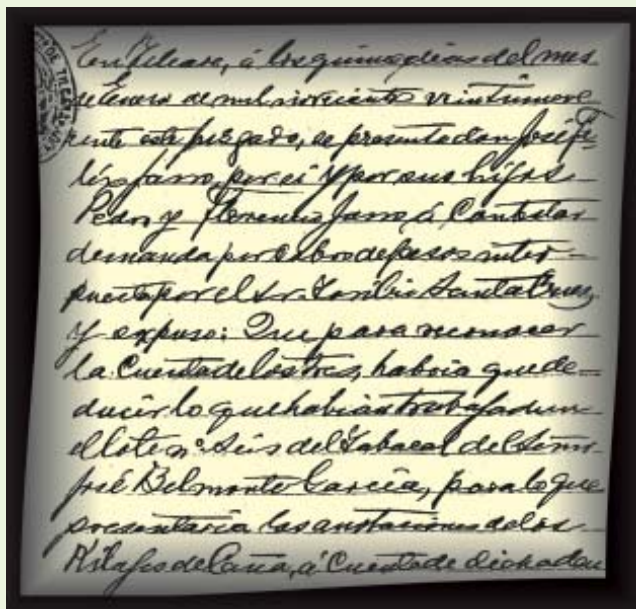 á los quince dias del mes
de Enero de mil novecientos veintinueve
ante este juzgado, se presenta don José Fe-
por si y por sus hijos
Pedro y Florencio á contestar
demanda por cobro de pesos inter-
puesta por el Sr. Toribio Santa Cruz,
y expuso: Que para reconocer
la cuenta de los tres, habria que de-
ducir lo que habian trabajado en
el lote nº Seis del Tabacal del Señor
José Belmonte Garcia, para lo que
presentaria las anotaciones de los
de Caña, á cuenta de dicha deu